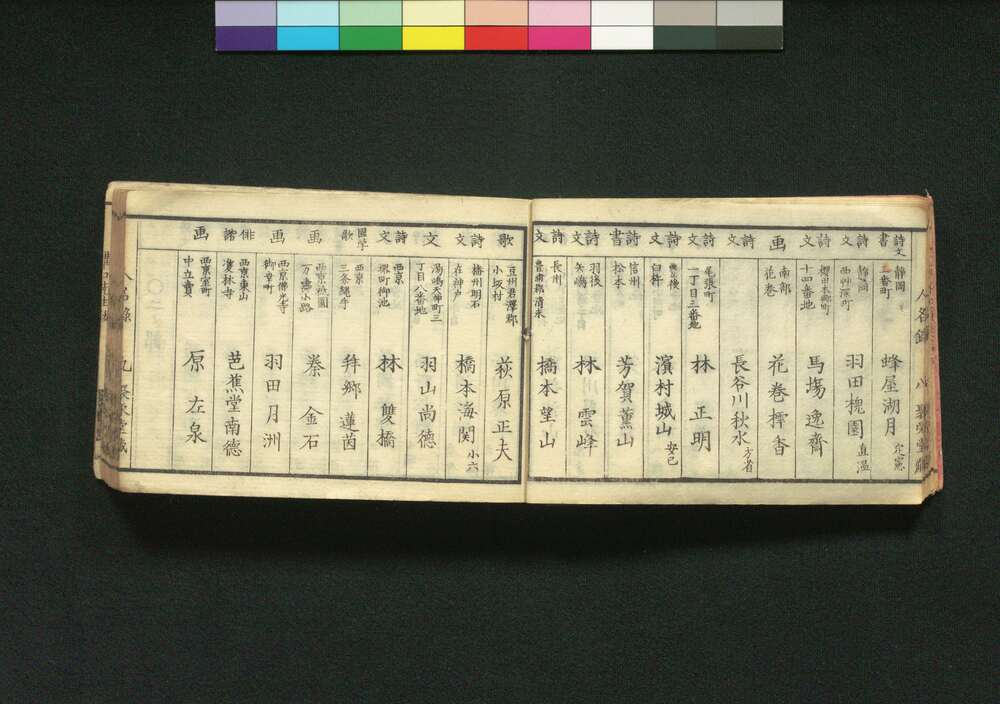 詩文書 静岡 三番町 蜂屋湖月 定憲
詩文 静岡 西草深町 羽田槐園 直温
詩文 桜田本郷町 十四番地 馬場逸齋
画 南部 花巻 花巻擇香
長谷川秋水 方省
詩文 尾張町 二丁目三番地 林正明
詩文 豊後 臼杵 濱村城山 安己
詩書 信州 松本 芳賀薫山
詩文 羽後 矢嶋 林雲峰
詩文 長州 豊浦郡清末 橋本望山
歌 豆州君澤郡 小坂村 萩原正夫
詩文 播州明石 在神戸 橋本海関 小六
文 湯嶋天神町三 丁目八番地 羽山尚德
詩文 西京 堺町御池 林雙橋
國学歌 西京 三条縄手 拜郷蓮茵
画 西京祇園 万壽小路 秦金石
画 西京佛光寺 御幸町 羽田月洲
俳諧 西京東山 双林寺 芭蕉堂南德
画 西京室町 中立賣 原左泉
人名録 九